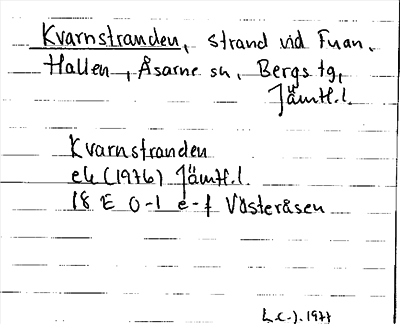 Kvarnstranden, strand vid Fuan.
Hallen, Åsarne sn, Bergs tg,
Jämtl.l.
Kvarnstranden
ek (1976) Jämtl.l.
18 E 0-1 e-f Västeråsen
L.C-J. 1977